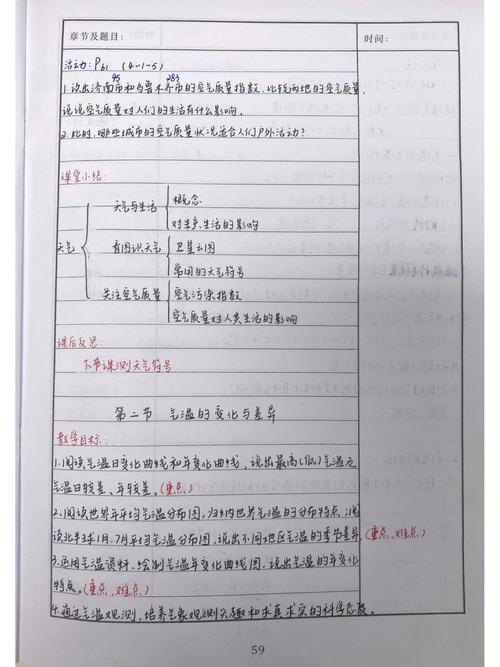 章节及题目:
时间:
活动: P61 (4-1-5)
95 283
1.说出济南市和乌鲁木齐市的空气质量指数,比较两地的空气质量
说说空气质量对人们的生活有什么影响.
2.此时,哪些城市的空气质量状况适合人们户外活动?
课堂小结:
天气
天气与生活
概念
对生产生活的影响
看图识天气
卫星云图
常用的天气符号
关注空气质量
空气污染指数
空气质量对人类生活的影响
课后反思:
下节课测天气符号
第二节 气温的变化与差异
教学目标:
1.阅读气温日变化曲线和年变化曲线,说出最高(低)气温及
气温日较差、年较差。(重点)
2.阅读世界年平均气温分布图,归纳世界气温的分布特点;阅
读北半球1月、7月平均气温分布图,说出不同地区气温的季节差异.(重点、难点)
3.运用气温资料,绘制气温年变化曲线图,说出气温的年变化
特点。(重点、难点)
4.通过气温观测,培养气象观测兴趣和求真求实的科学态度.
59